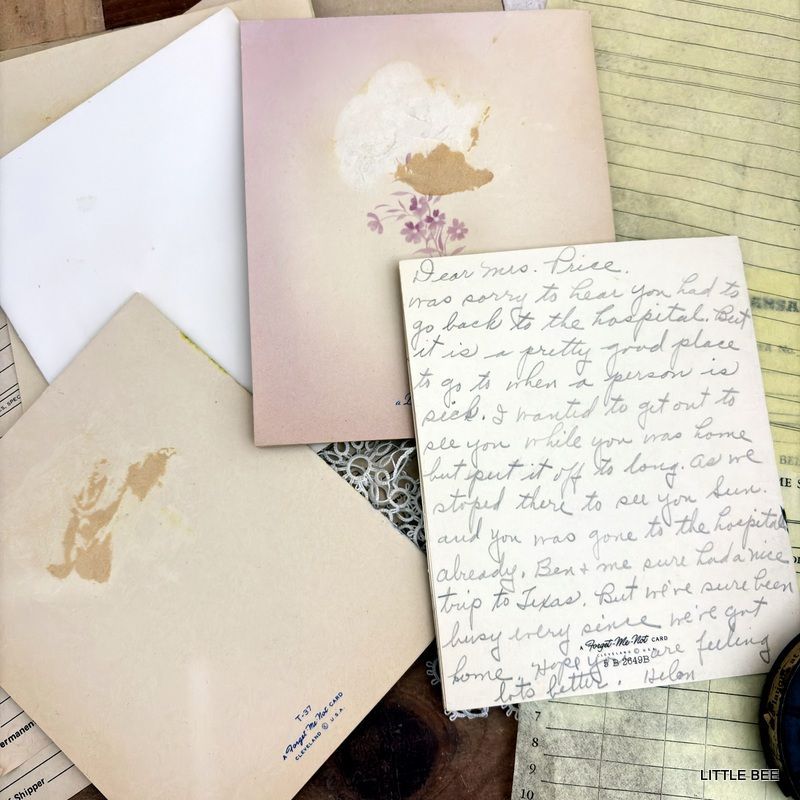 Dear Mrs. Price.
was sorry to hear you had to
go back to the hospital. But
it is a pretty good place
to go to when a person is
sick. I wanted to get out to
see you while you was home
but put it off to long. As we
stoped there to see you Sun.
and you was gone to the hospital
already. Ben + me sure had a nice
trip to Texas. But we've sure been
busy every since we've got
home. Hope you are feeling
lots better. Helen
A Forget-Me-Not CARD
CLEVELAND © U.S.A.
9 B 2649B
T-37
A Forget Me Not CARD
CLEVELAND © U.S.A.
Shipper
7
8
9
10
LITTLE BEE